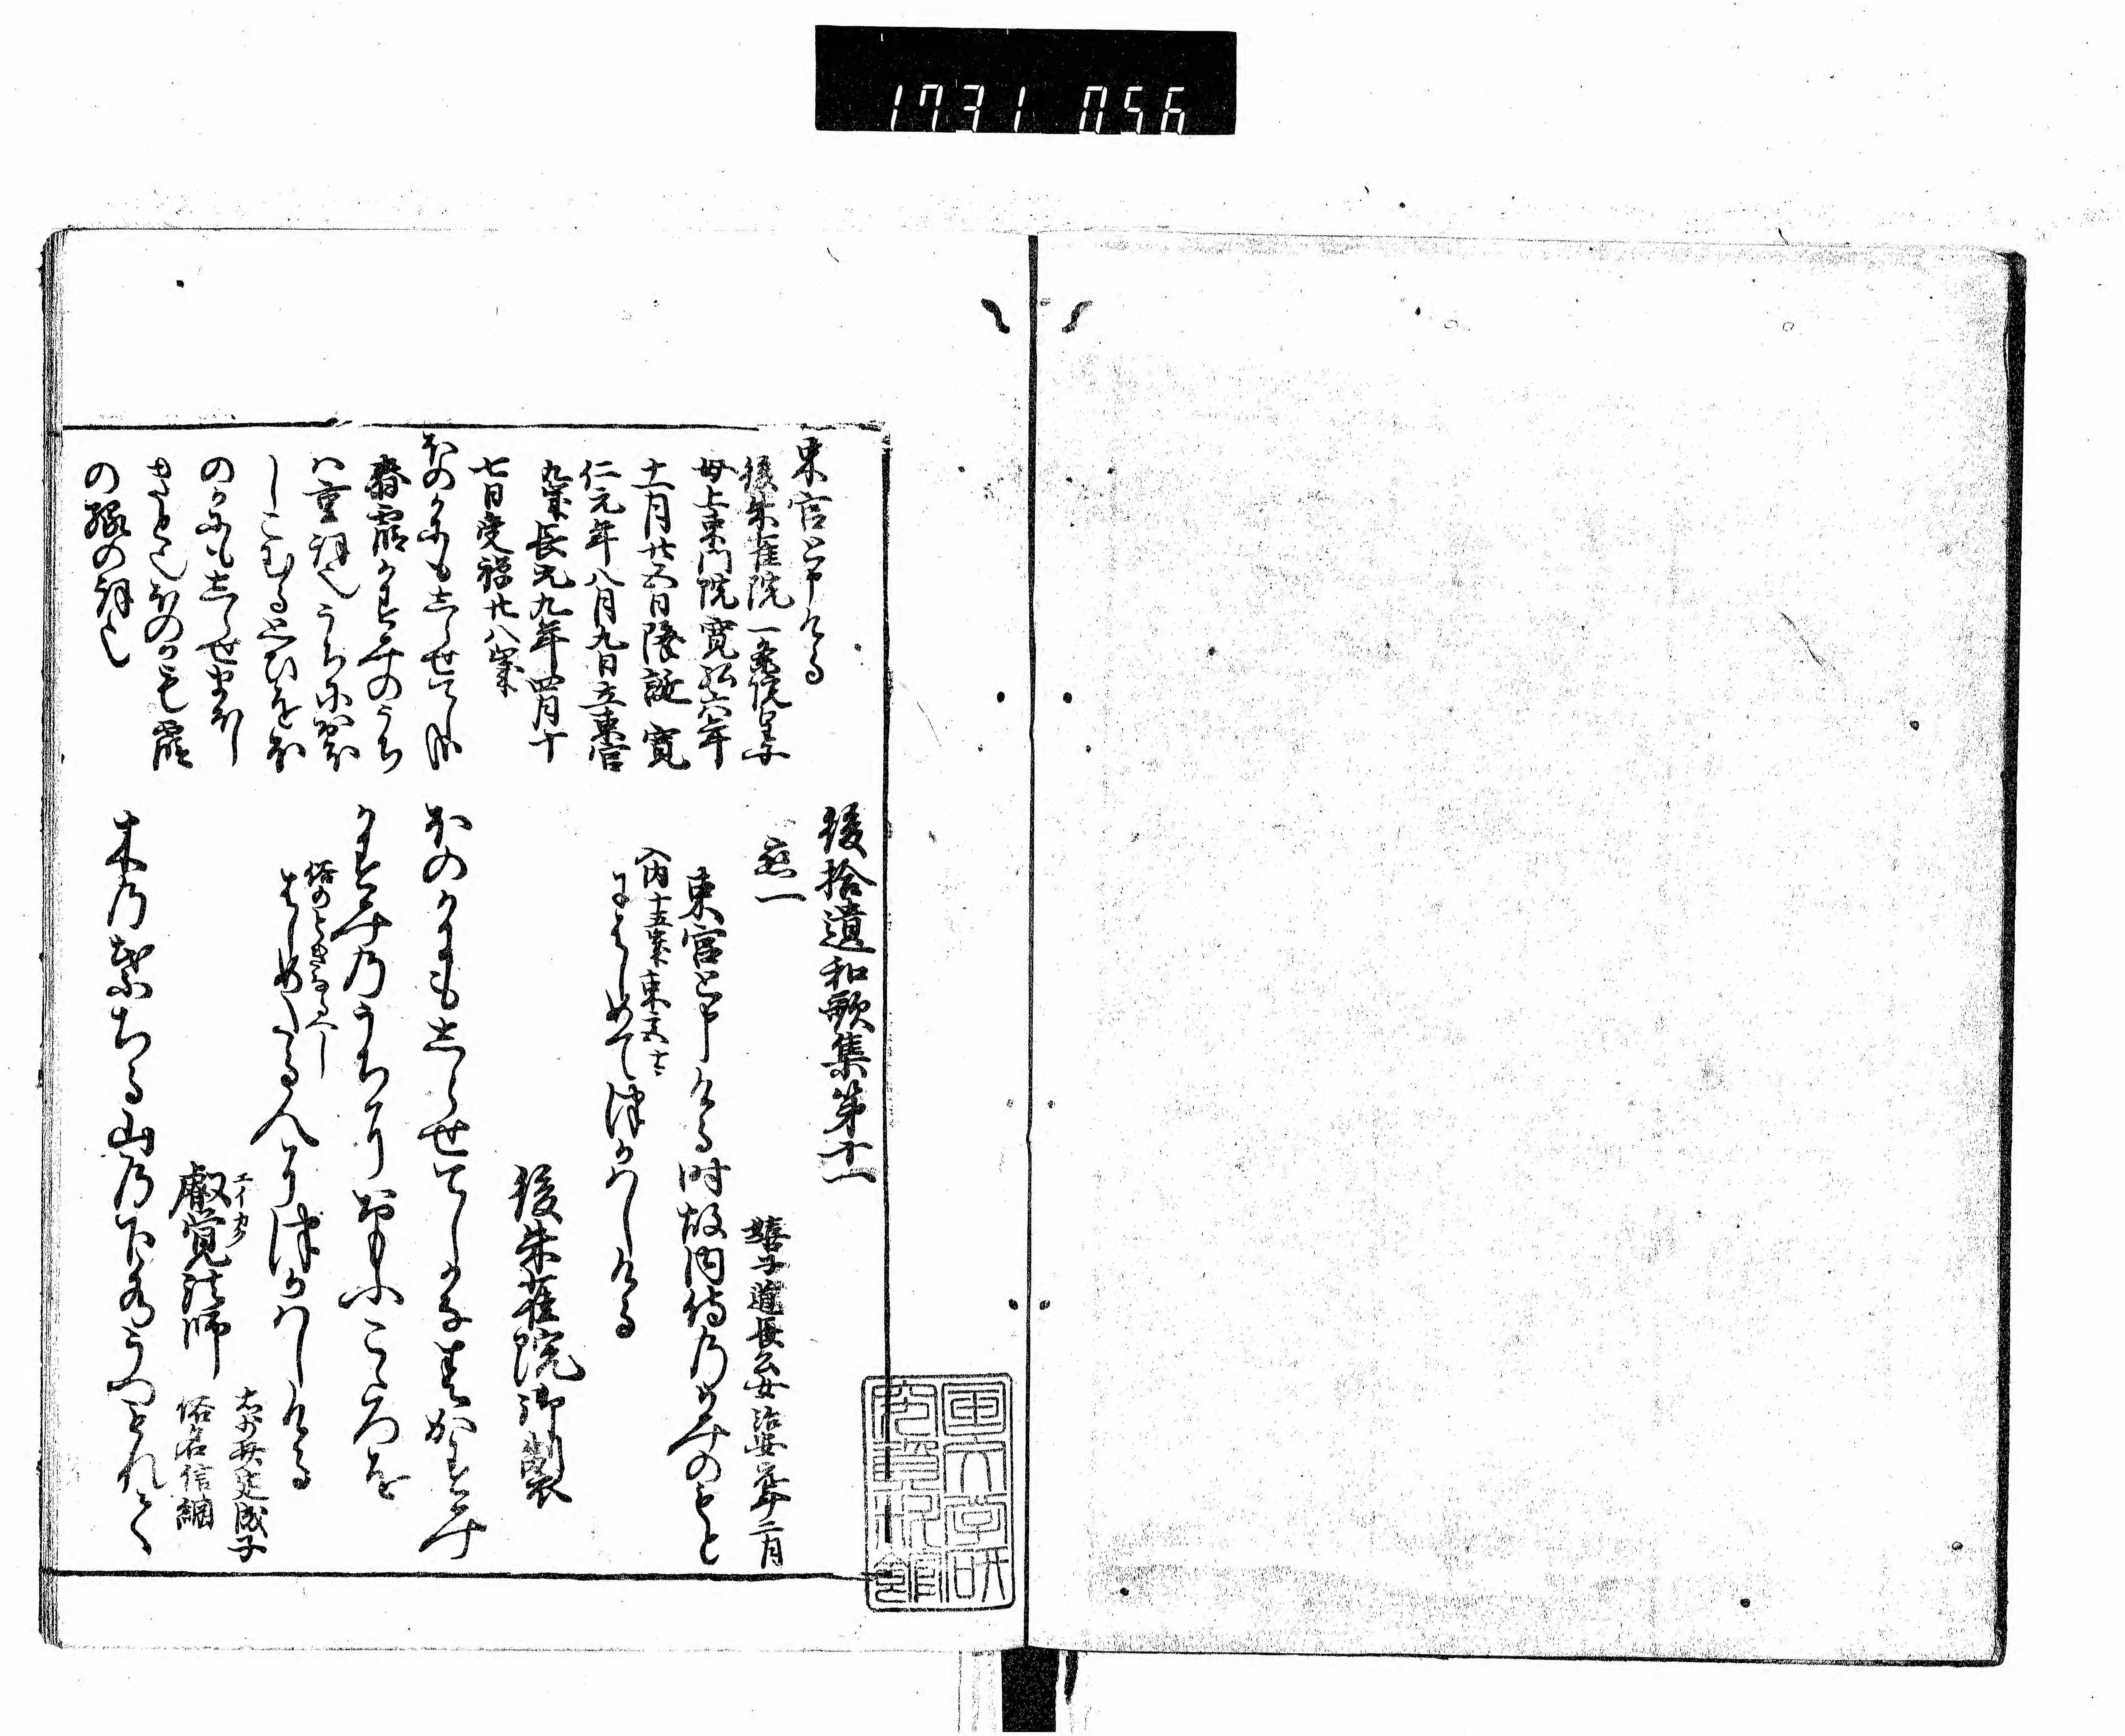 1731 056
後拾遺和歌集第十一
恋一
嬉子道長公女治安元年二月
東宮と申ける時故内侍のかみのもと
入内十五歳東宮十三
にはしめてつかはしける
後朱雀院御製
ほのかにもしらせてしかな春かすみ
かすみのうちにおもふこゝろを
俗のときなるへし
はしめたる人につかはしける
エイカク
叡覚法師
俗名信綱
木の葉ちる山の下水うつもれて
東宮と申ける
後朱雀院一条院皇子
母上東門院寛弘六年
十一月廿五日降誕寛
仁元年八月九日立東宮
九歳長元九年四月十
七日受禅廿八歳
ほのかにもしらせてしか
春霞かすみのうち
ハ重詞也うちに
しこむる思ひをほ
のかにもしらせまほし
きと也ほのかも霞
の縁の詞也